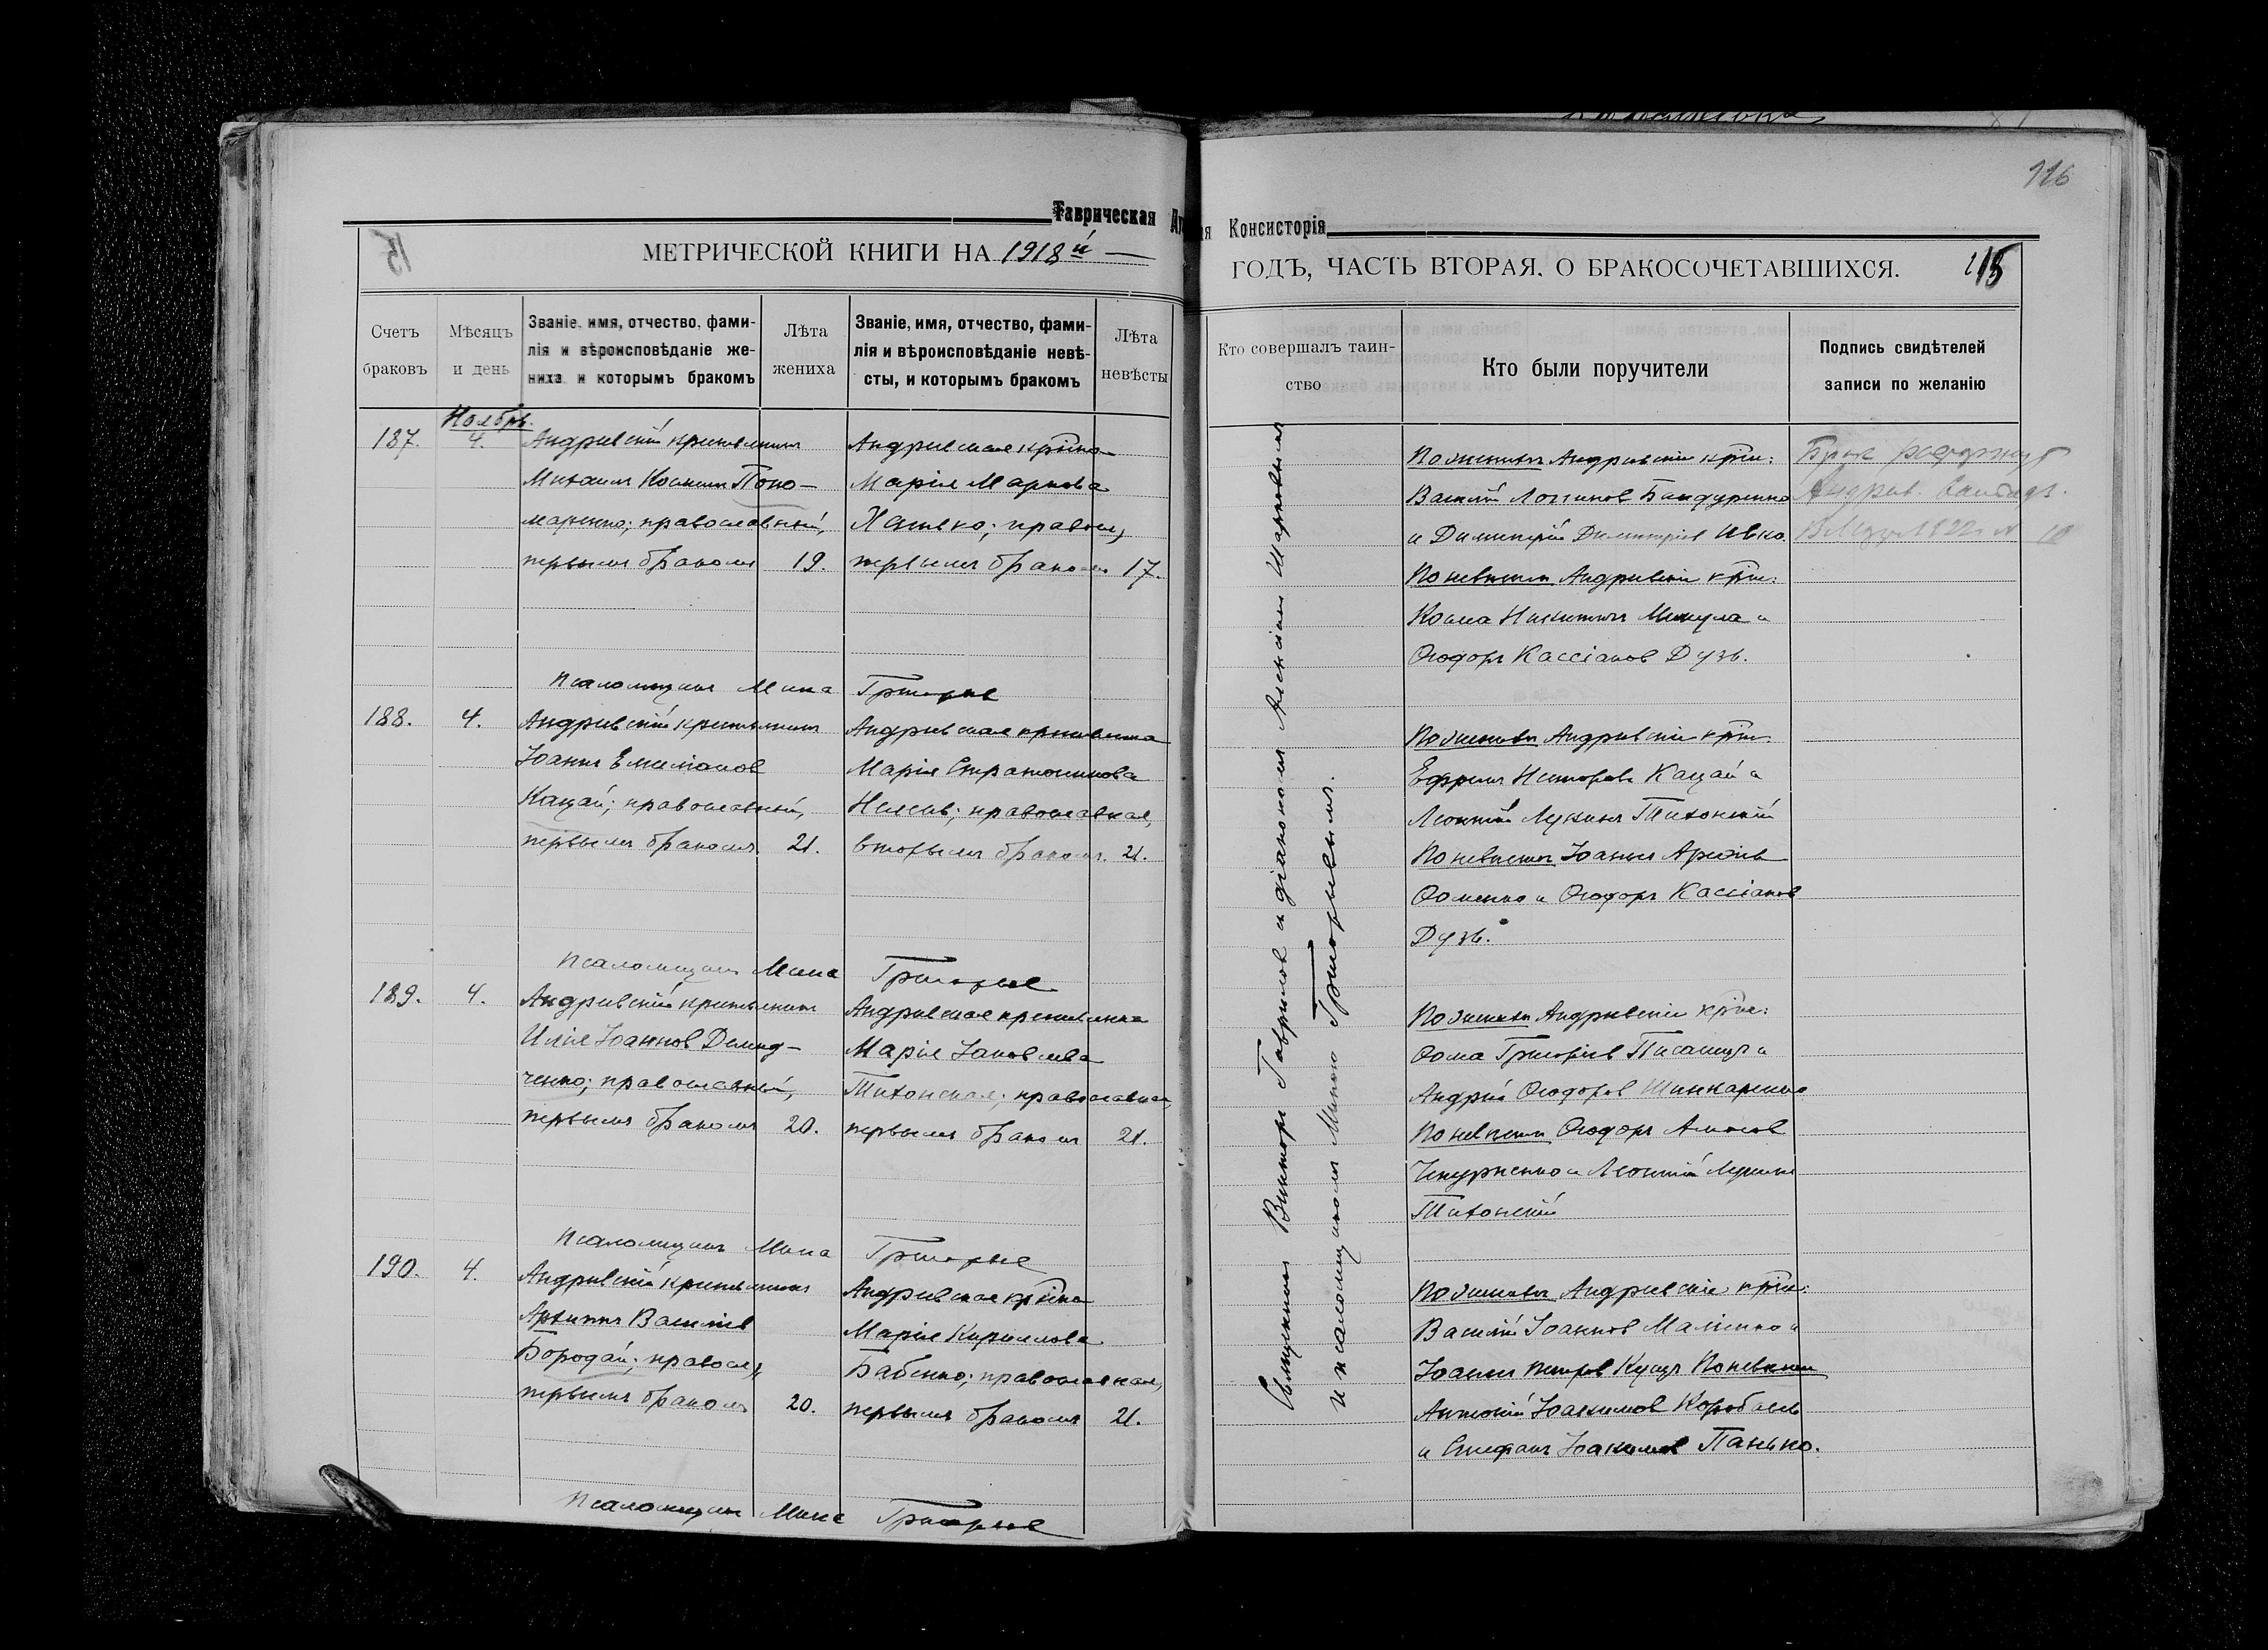 116
Таврическая
Консисторія
МЕТРИЧЕСКОЙ КНИГИ НА 1918й
ГОДЪ, ЧАСТЬ ВТОРАЯ, О БРАКОСОЧЕТАВШИХСЯ.
115
Счетъ браковъ
Мѣсяцъ и день
Званіе, имя, отчество, фами-
лія и вѣроисповѣданіе же-
ниха и которымъ бракомъ
Лѣта жениха
Званіе, имя, отчество, фами-
лія и вѣроисповѣданіе невѣ-
сты, и которымъ бракомъ
Лѣта невѣсты
Кто совершалъ таин-
ство
Кто были поручители
Подпись свидѣтелей
записи по желанію
Ноябрь.
187.
4.
Андреевскій крестьянинъ
Михаилъ Косминъ Поно-
маренко; православный,
первымъ бракомъ
19.
Андреевская кр҃нка
Марія Маркова
Хатько; правосл,
первымъ бракомъ
17.
По женихѣ Андреевскіе крест:
Василій Логгиновъ Бандуренко
и Димитрій Димитріевъ Ивко.
По невѣстѣ Андреевскіе крест:
Косма Никитинъ Микула и
Ѳеодоръ Кассіановъ Дузь.
Бракъ расторгнутъ
Псаломщикъ Мина Григорьев
188.
4.
Андреевскій крестьянинъ
Іоаннъ Емиліановъ
Кацай; православный,
первымъ бракомъ.
21.
Андреевская крестьянка
Марія Стратоникова
православная,
вторымъ бракомъ.
21.
По женихѣ Андреевскіе крест.
Ефремъ Несторовъ Кацай и
Леонтій Лукинъ Тихонскій
По невѣстѣ Іоаннъ
Ѳоменко и Ѳеодоръ Кассіановъ
Дузь.
Псаломщикъ Мина Григорьев
189.
4.
Андреевскій крестьянинъ
Илія Іоанновъ Демид-
ченко; православный,
первымъ бракомъ
20.
Андреевская крестьянка
Марія Іаковлева
Тихонская; православная,
первымъ бракомъ
21.
По женихѣ Андреевскіе крест:
Ѳома Григоріевъ Писанецъ и
Андрей Ѳеодоровъ Шинкаренко
По невѣстѣ Ѳеодоръ
и Леонтій Лукинъ
Тихонскій
Псаломщикъ Мина Григорьев
190.
4.
Андреевскій крестьянинъ
Архиппъ Василіевъ
Бородай; правосл,
первымъ бракомъ
20.
Андреевская кр҃нка
Марія Кириллова
Бабенко; православная,
первымъ бракомъ
21.
По женихѣ Андреевскіе крест:
Василій Іоанновъ и
Іоаннъ Петровъ Куцъ По невѣстѣ
Антоній Іоакимовъ
и Стефанъ Іоакимовъ Панько.
Псаломщикъ Мина Григорьев
Священникъ Викторъ Гавриловъ и діакономъ Алексіемъ
и псаломщикомъ Миною Григорьевымъ.